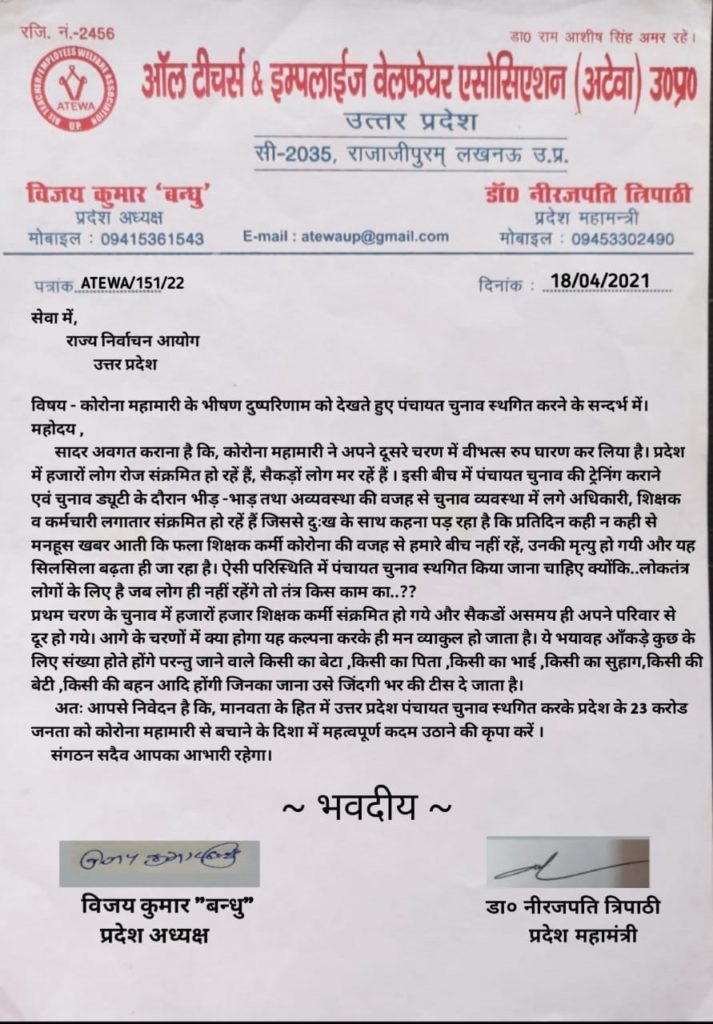 रजि. नं.-2456
डा0 राम आशीष सिंह अमर रहे।
ALL TEACHER/EMPLOYEES WELFARE ASSOCIATION
ATEWA
UP
ऑल टीचर्स & इम्पलाईज वेलफेयर एसोसिएशन (अटेवा) उ0प्र0
उत्तर प्रदेश
सी-2035, राजाजीपुरम् लखनऊ उ.प्र.
विजय कुमार 'बन्धु'
प्रदेश अध्यक्ष
मोबाइल : 09415361543
E-mail : atewaup@gmail.com
डॉ0 नीरजपति त्रिपाठी
प्रदेश महामन्त्री
मोबाइल : 09453302490
पत्रांक ATEWA/151/22
दिनांक : 18/04/2021
सेवा में,
राज्य निर्वाचन आयोग
उत्तर प्रदेश
विषय - कोरोना महामारी के भीषण दुष्परिणाम को देखते हुए पंचायत चुनाव स्थगित करने के सन्दर्भ में।
महोदय ,
सादर अवगत कराना है कि, कोरोना महामारी ने अपने दूसरे चरण में वीभत्स रुप घारण कर लिया है। प्रदेश
में हजारों लोग रोज संक्रमित हो रहें हैं, सैकड़ों लोग मर रहें हैं । इसी बीच में पंचायत चुनाव की ट्रेनिंग कराने
एवं चुनाव ड्यूटी के दौरान भीड़ -भाड़ तथा अव्यवस्था की वजह से चुनाव व्यवस्था में लगे अधिकारी, शिक्षक
व कर्मचारी लगातार संक्रमित हो रहें हैं जिससे दुःख के साथ कहना पड़ रहा है कि प्रतिदिन कही न कही से
मनहूस खबर आती कि फला शिक्षक कर्मी कोरोना की वजह से हमारे बीच नहीं रहें, उनकी मृत्यु हो गयी और यह
सिलसिला बढ़ता ही जा रहा है। ऐसी परिस्थिति में पंचायत चुनाव स्थगित किया जाना चाहिए क्योंकि..लोकतंत्र
लोगों के लिए है जब लोग ही नहीं रहेंगे तो तंत्र किस काम का..??
प्रथम चरण के चुनाव में हजारों हजार शिक्षक कर्मी संक्रमित हो गये और सैकडों असमय ही अपने परिवार से
दूर हो गये। आगे के चरणों में क्या होगा यह कल्पना करके ही मन व्याकुल हो जाता है। ये भयावह आँकड़े कुछ के
लिए संख्या होते होंगे परन्तु जाने वाले किसी का बेटा ,किसी का पिता ,किसी का भाई ,किसी का सुहाग,किसी की
बेटी ,किसी की बहन आदि होंगी जिनका जाना उसे जिंदगी भर की टीस दे जाता है।
अतः आपसे निवेदन है कि, मानवता के हित में उत्तर प्रदेश पंचायत चुनाव स्थगित करके प्रदेश के 23 करोड
जनता को कोरोना महामारी से बचाने के दिशा में महत्वपूर्ण कदम उठाने की कृपा करें ।
संगठन सदैव आपका आभारी रहेगा।
~ भवदीय ~
विजय कुमार "बन्धु"
प्रदेश अध्यक्ष
डा० नीरजपति त्रिपाठी
प्रदेश महामंत्री